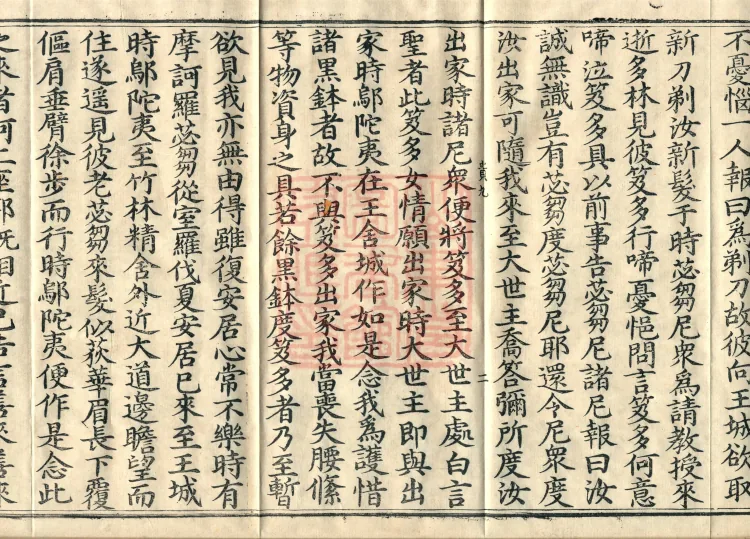 不憂惱一人報曰爲剃刀故彼向王城欲取
新刀剃汝新髮于時苾芻尼衆爲請教授來
逝多林見彼笈多行啼憂悒問言笈多何意
啼泣笈多具以前事告苾芻尼諸尼報曰汝
誠無識豈有苾芻度苾芻尼耶還令尼衆度
汝出家可隨我來至大世主喬答彌所度汝
貴九 二
出家時諸尼衆便將笈多至大世主處白言
聖者此笈多女情願出家時大世主即與出
家時鄔陀夷在王舍城作如是念我爲護惜
諸黑鉢者故不與笈多出家我當喪失腰絛
等物資身之具若餘黑鉢度笈多者乃至暫
欲見我亦無由得雖復安居心常不樂時有
摩訶羅苾芻從室羅伐夏安居已來至王城
時鄔陀夷至竹林精舍外近大道邊瞻望而
住遂遥見彼老苾芻來髮似荻華眉長下覆
傴肩垂臂徐步而行時鄔陀夷便作是念此